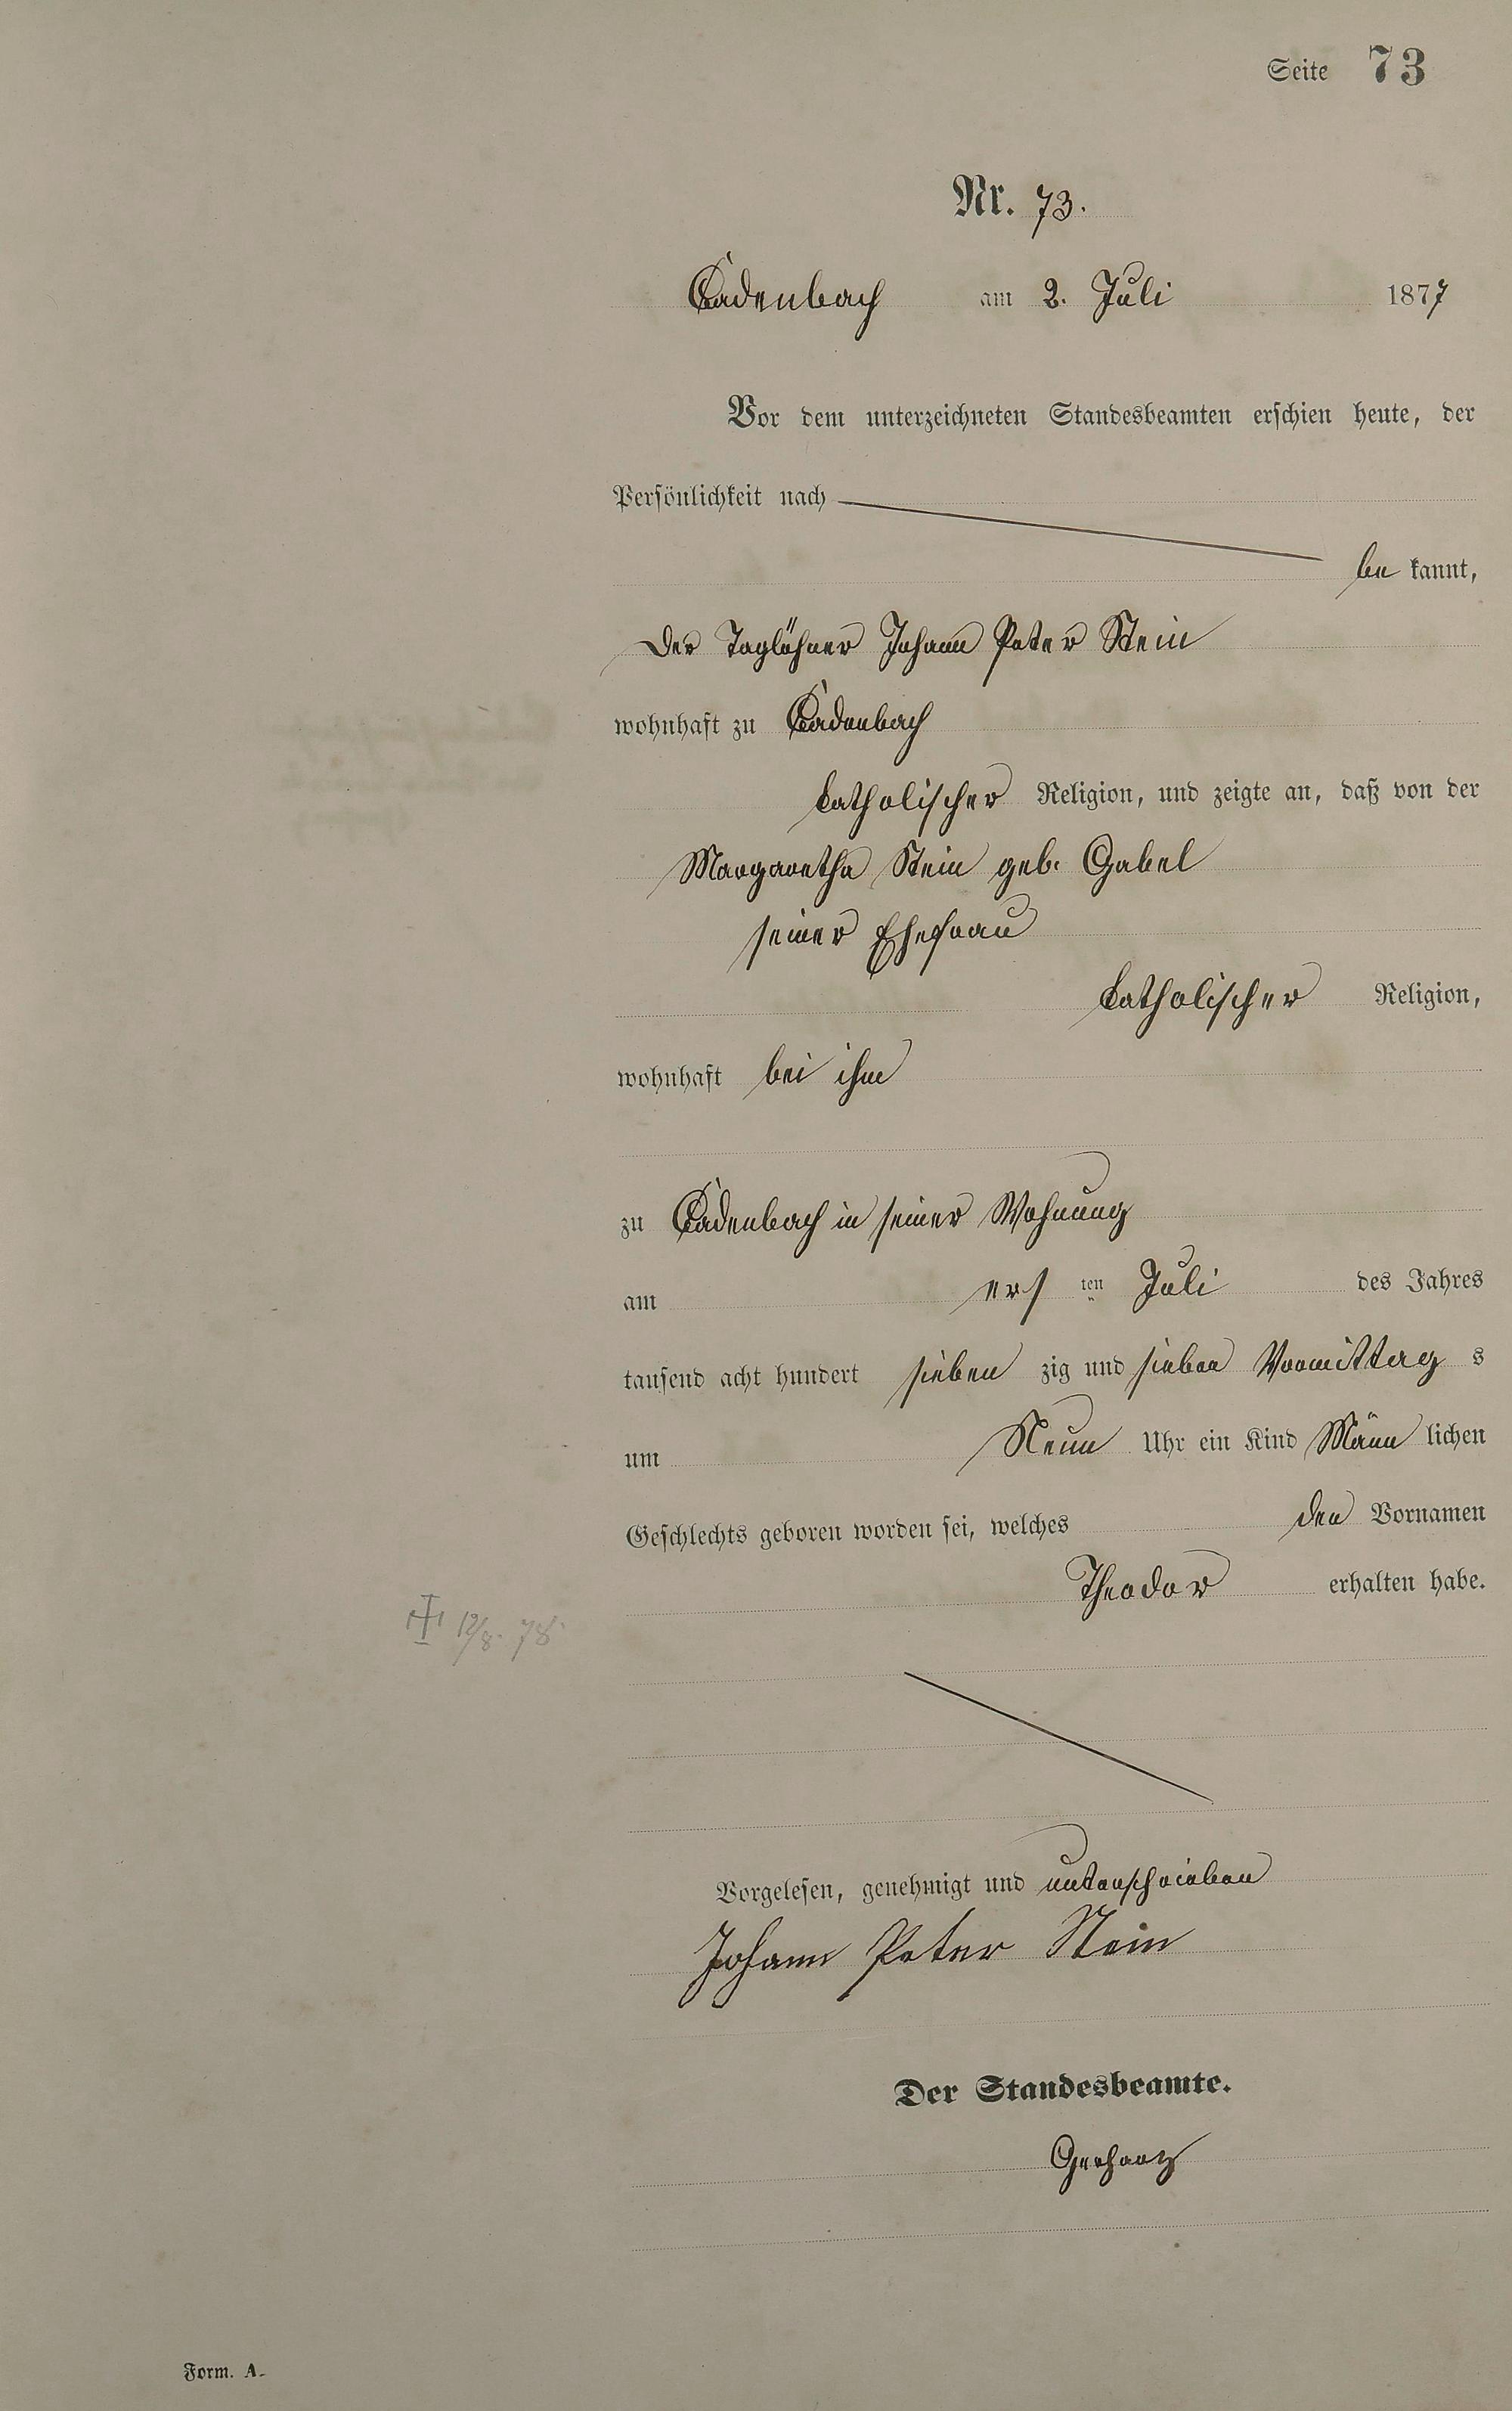 Seite 73
Nr. 73.
Cadenbach am 2. Juli 1877
Vor dem unterzeichneten Standesbeamten erschien heute, der
Persönlichkeit nach
be kannt,
der Taglöhner Johann Peter Stein
wohnhaft zu Cadenbach
katholischer Religion, und zeigte an, daß von der
Margaretha Stein geb. Gabel
seiner Ehefrau
katholischer Religion,
wohnhaft bei ihm
zu Cadenbach in seiner Wohnung
am ers ten Juli des Jahres
tausend acht hundert sieben zig und sieben Vormittag s
um Neun Uhr ein Kind Männ lichen
Geschlechts geboren worden sei, welches den Vornamen
Theodor erhalten habe.
12/8. 78
Vorgelesen, genehmigt und unterschrieben
Johann Peter Stein
Der Standesbeamte.
Gerharz
Form. A.